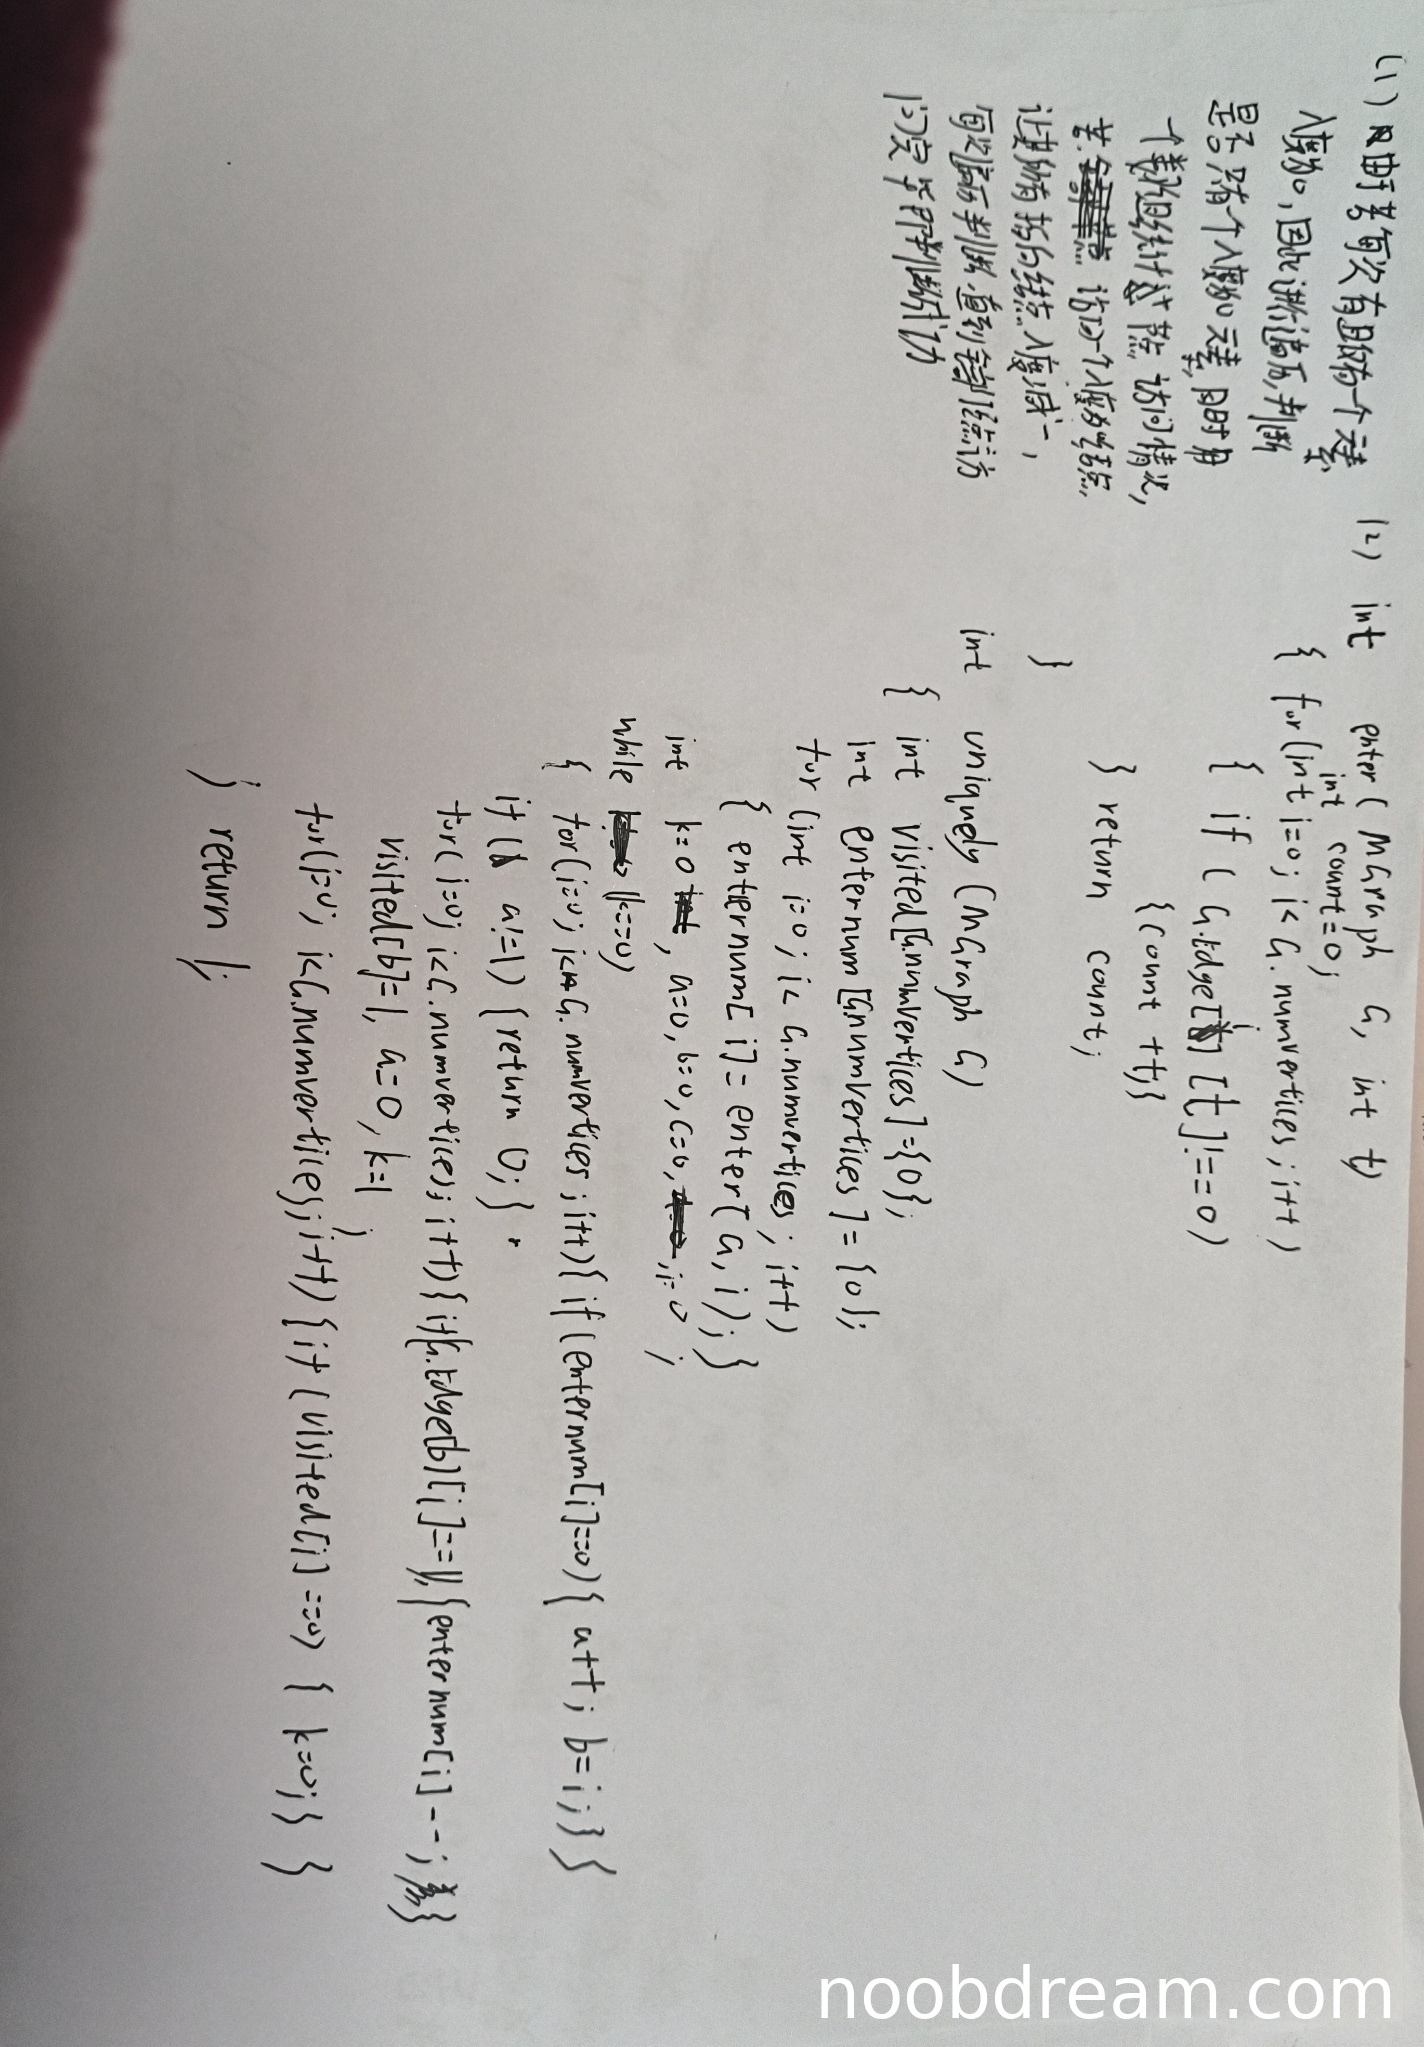 (1) 由于若每次有且仅有一个元素
入度为0，因此进行遍历，判断
是否只有一个入度为0元素，同时用
个数组统计结点访问情况，
若访问一个入度为0结点，
让其所有指向结点入度减一，
每次循环判断，直到全部结点访
问完毕即判断成功
(2) int enter(MGraph G, int t)
int count=0;
{ for(int i=0; i<G.numvertices; i++)
{ if (G.Edge[i][t]!==0)
{count ++;}
} return count;
}
int uniquely (MGraph G)
{ int visited[G.numvertices]={0};
int enternum[G.numvertices]={0};
for (int i=0; i<G.numvertices; i++)
{ enternum[i]=enter(G, i); }
int k=0, a=0, b=0, c=0, i=0;
while (k==0)
{ for(i=0; i<G.numvertices; i++){ if(enternum[i]==0){ a++; b=i;}}
if( a!=1) {return 0;}
for(i=0; i<G.numvertices; i++){if(G.Edge[b][i]==1){enternum[i]--;}}
visited[b]=1, a=0, k=1;
for(i=0; i<G.numvertices; i++){if(visited[i]==0){ k=0;} }
} return 1;
noobdream.com